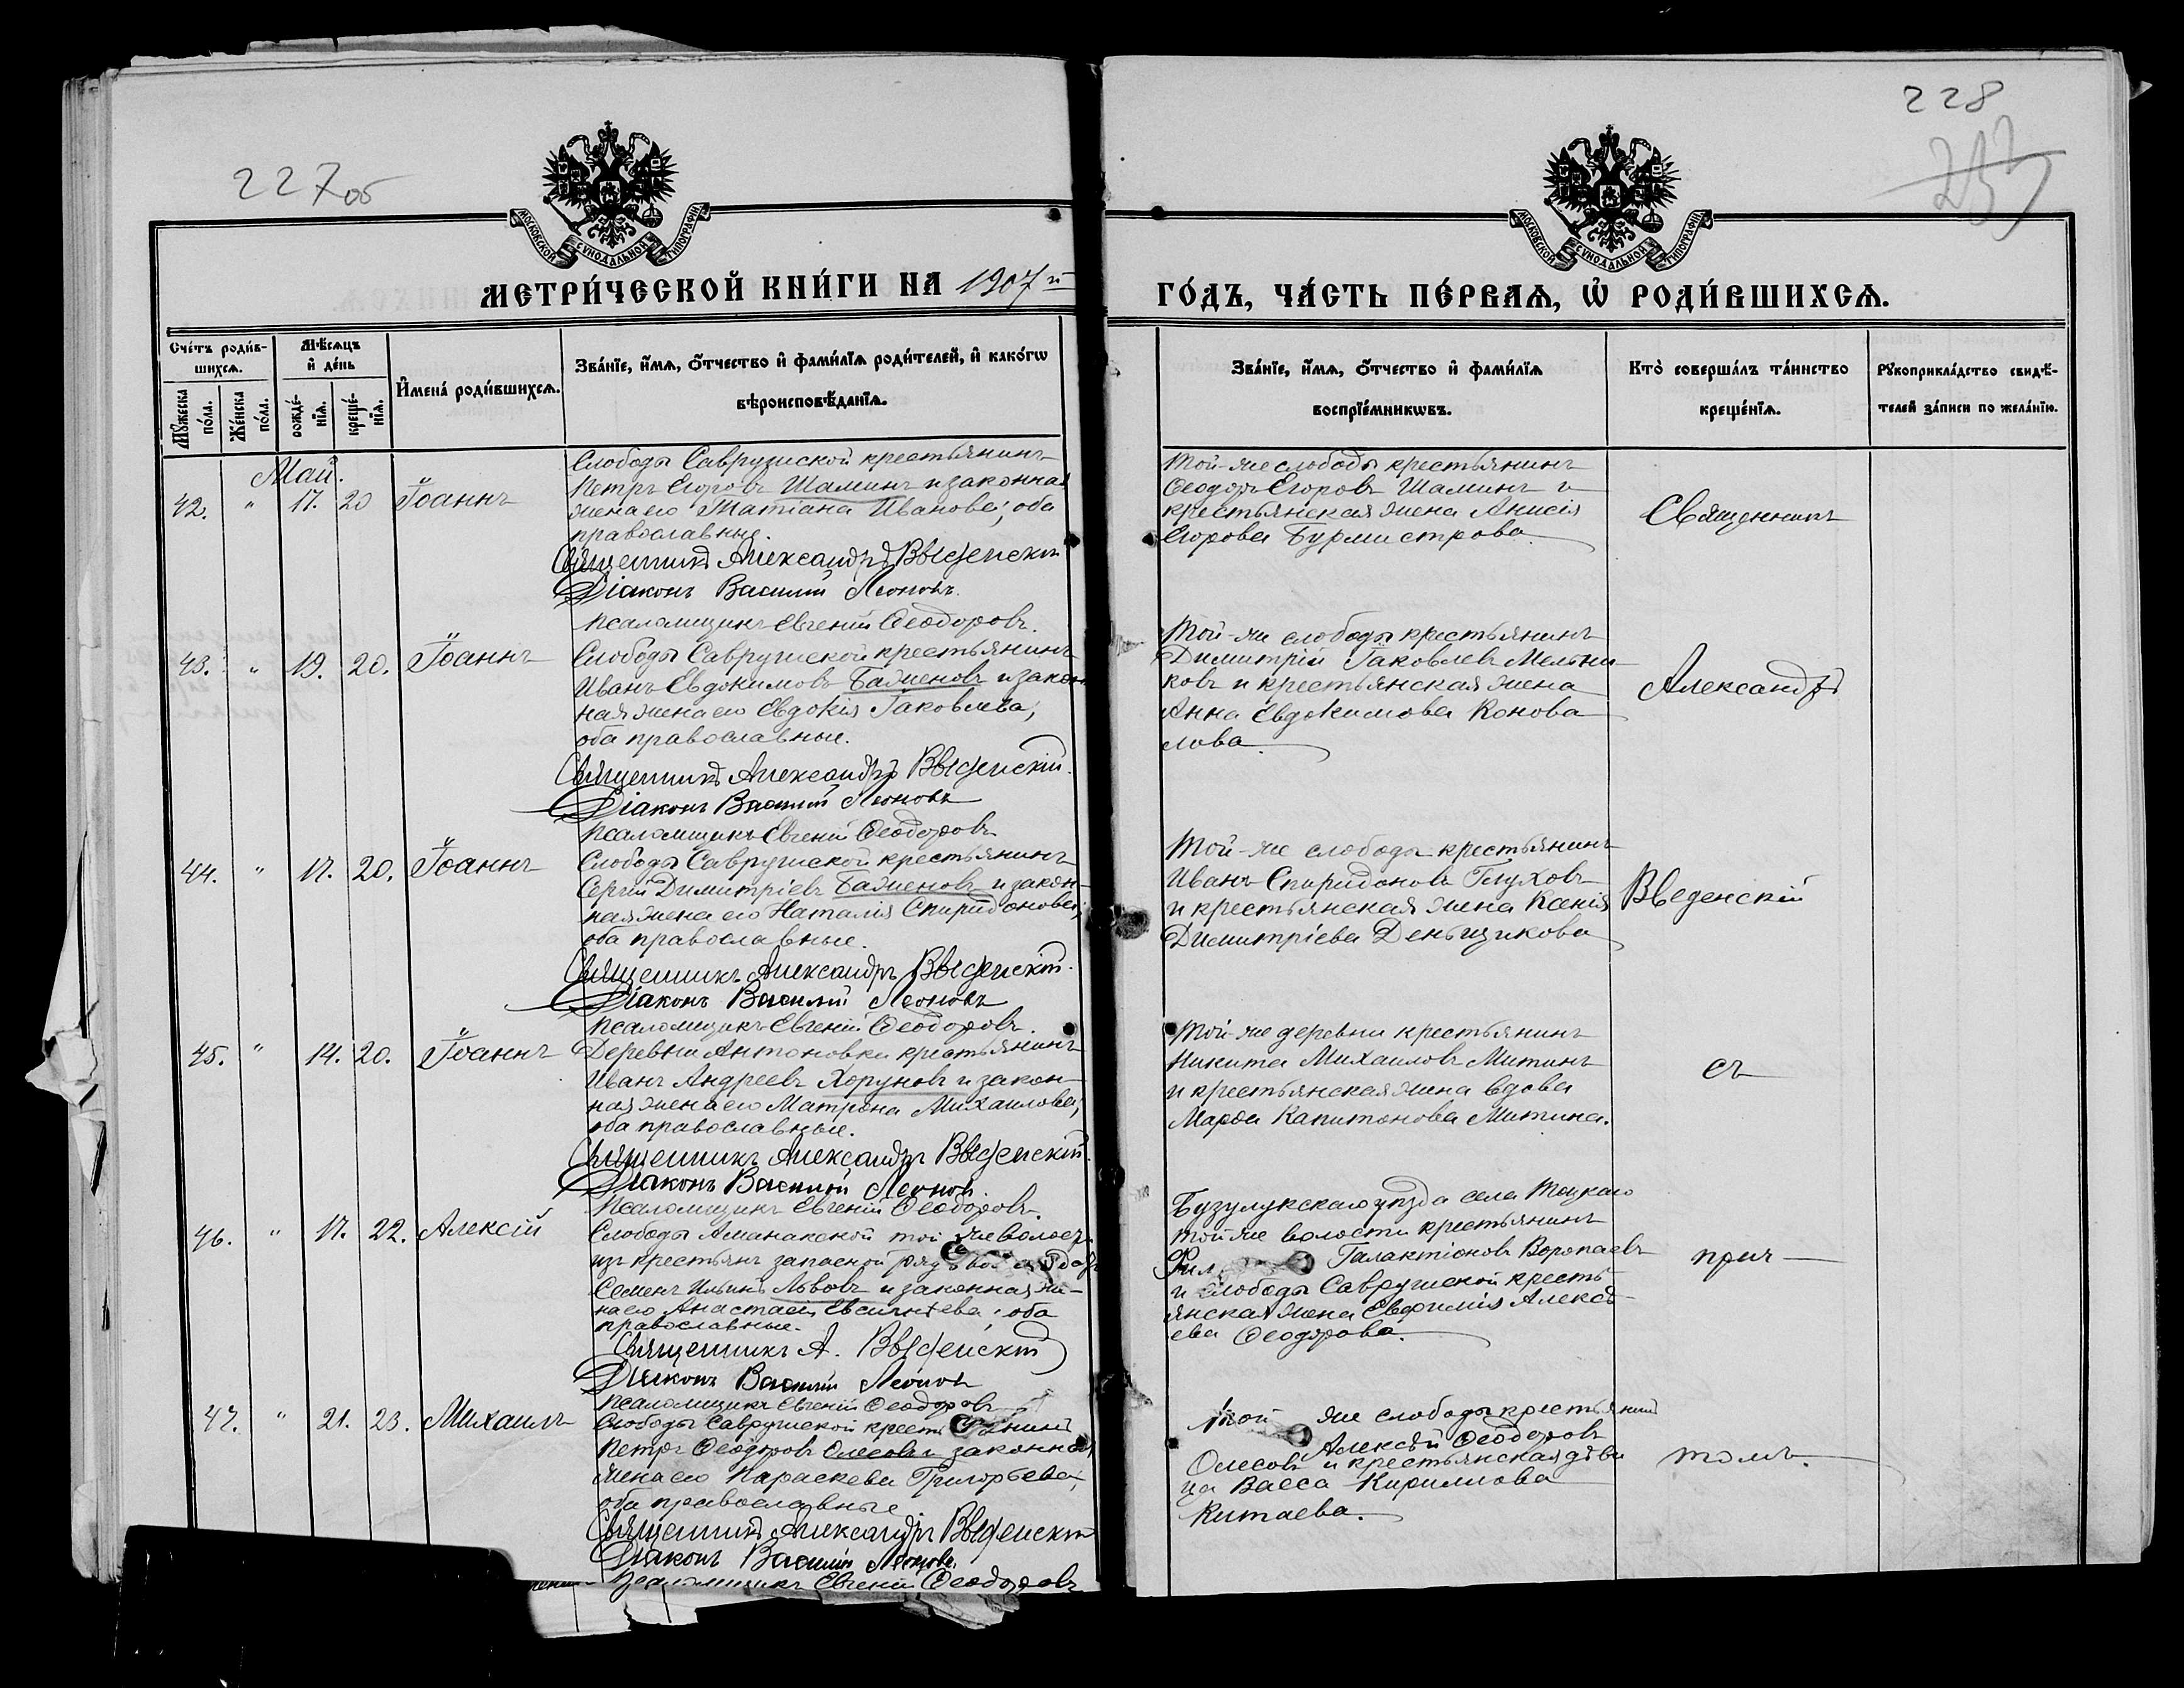 227об
228
МОСКОВСКОЙ СУНОДАЛЬНОЙ ТИПОГРАФІИ
МОСКОВСКОЙ СУНОДАЛЬНОЙ ТИПОГРАФІИ
МЕТРИ́ЧЕСКОЙ КНИ́ГИ НА 1907й
ГО́ДЪ, ЧА́СТЬ ПЕ́РВАѦ, Ѡ РОДИ́ВШИХСѦ.
Сче́тъ роди́в-
шихсѧ.
Мꙋ́жеска по́ла.
Же́нска по́ла.
Мѣ́сѧцъ
и де́нь
рожде́-
нїѧ.
креще́-
нїѧ.
И҆мена́ роди́вшихсѧ.
Зва́нїе, и҆́мѧ, ѻ҆́тчество и҆ фами́лїѧ роди́телей, и҆ како́гѡ
вѣроисповѣ́данїѧ.
Зва́нїе, и҆́мѧ, ѻ҆́тчество и҆ фами́лїѧ
воспрїе́мникѡвъ.
Кто̀ соверша́лъ та́инство
креще́нїѧ.
Рꙋкоприкла́дство свидѣ́-
телей за́писи по жела́нїю.
Май.
42. " 17. 20 Іоаннъ
Слободы Саврушской крестьянинъ
Петръ Егоровъ Шаминъ и законная
жена его Татіана Иванова; оба
православные.
Священникъ Александръ Введенскій
Діаконъ Василій Леоновъ.
Псаломщикъ Евгеній Ѳеодоровъ.
Той-же слободы крестьянинъ
Ѳеодоръ Егоровъ Шаминъ и
крестьянская жена Анисія
Егорова Бурмистрова
Священникъ
43. " 19. 20. Іоаннъ
Слободы Саврушской крестьянинъ
Иванъ Евдокимовъ Баженовъ и закон
ная жена его Евдокія Іаковлева;
оба православные.
Священникъ Александръ Введенскій.
Діаконъ Василій Леоновъ
Псаломщикъ Евгеній Ѳеодоровъ
Той-же слободы крестьянинъ
Димитрій Іаковлевъ Мельни
ковъ и крестьянская жена
Анна Евдокимова Конова
лова.
Александръ
44. " 17. 20. Іоаннъ
Слободы Саврушской крестьянинъ
Сергій Димитріевъ Баженовъ и закон-
ная жена его Наталія Спиридонова;
оба православные.
Священникъ Александръ Введенскій.
Діаконъ Василій Леоновъ
Псаломщикъ Евгеній Ѳеодоровъ.
Той-же слободы крестьянинъ
Иванъ Спиридоновъ Глуховъ
и крестьянская жена Ксенія
Димитріева Деньщикова
Введенскій
45. " 14. 20. Іоаннъ
Деревни Антоновки крестьянинъ
Иванъ Андреевъ Хоруновъ и закон-
ная жена его Матрона Михаилова;
оба православные.
Священникъ Александръ Введенскій.
Діаконъ Василій Леонов.
Псаломщикъ Евгеній Ѳеодоровъ.
Той-же деревни крестьянинъ
Никита Михаиловъ Митинъ
и крестьянская жена вдова
Марѳа Капитонова Митина.
съ
46. " 17. 22. Алексій
Слободы Аманакской той же волост
изъ крестьянъ запасной
Семенъ Ильинъ Львовъ и законная же-
на его Анастасія Евсигнѣева; оба
православные.
Священникъ А. Введенскій
Діаконъ Василій Леонов
Псаломщикъ Евгеній Ѳеодоровъ
Бузулукскаго уѣзда села Тоцкаго
той же волости крестьянинъ
Фил Галактіоновъ Воропаевъ
и слободы Саврушской кресть-
янская жена Евфимія Алексѣ-
ева Ѳеодорова.
прич-
47. " 21. 23. Михаилъ
Слободы Саврушской крестьянинъ
Петръ Ѳеодоровъ Олесовъ законная
жена его Параскева Григорьева;
оба православные
Священникъ Александръ Введенскій
Діаконъ Василій Леонов.
Псаломщикъ Евгеній Ѳеодоровъ
Той же слободы крестьянинъ
Алексѣй Ѳеодоровъ
Олесовъ и крестьянская дѣви
ца Васса Кириллова
Китаева.
томъ.